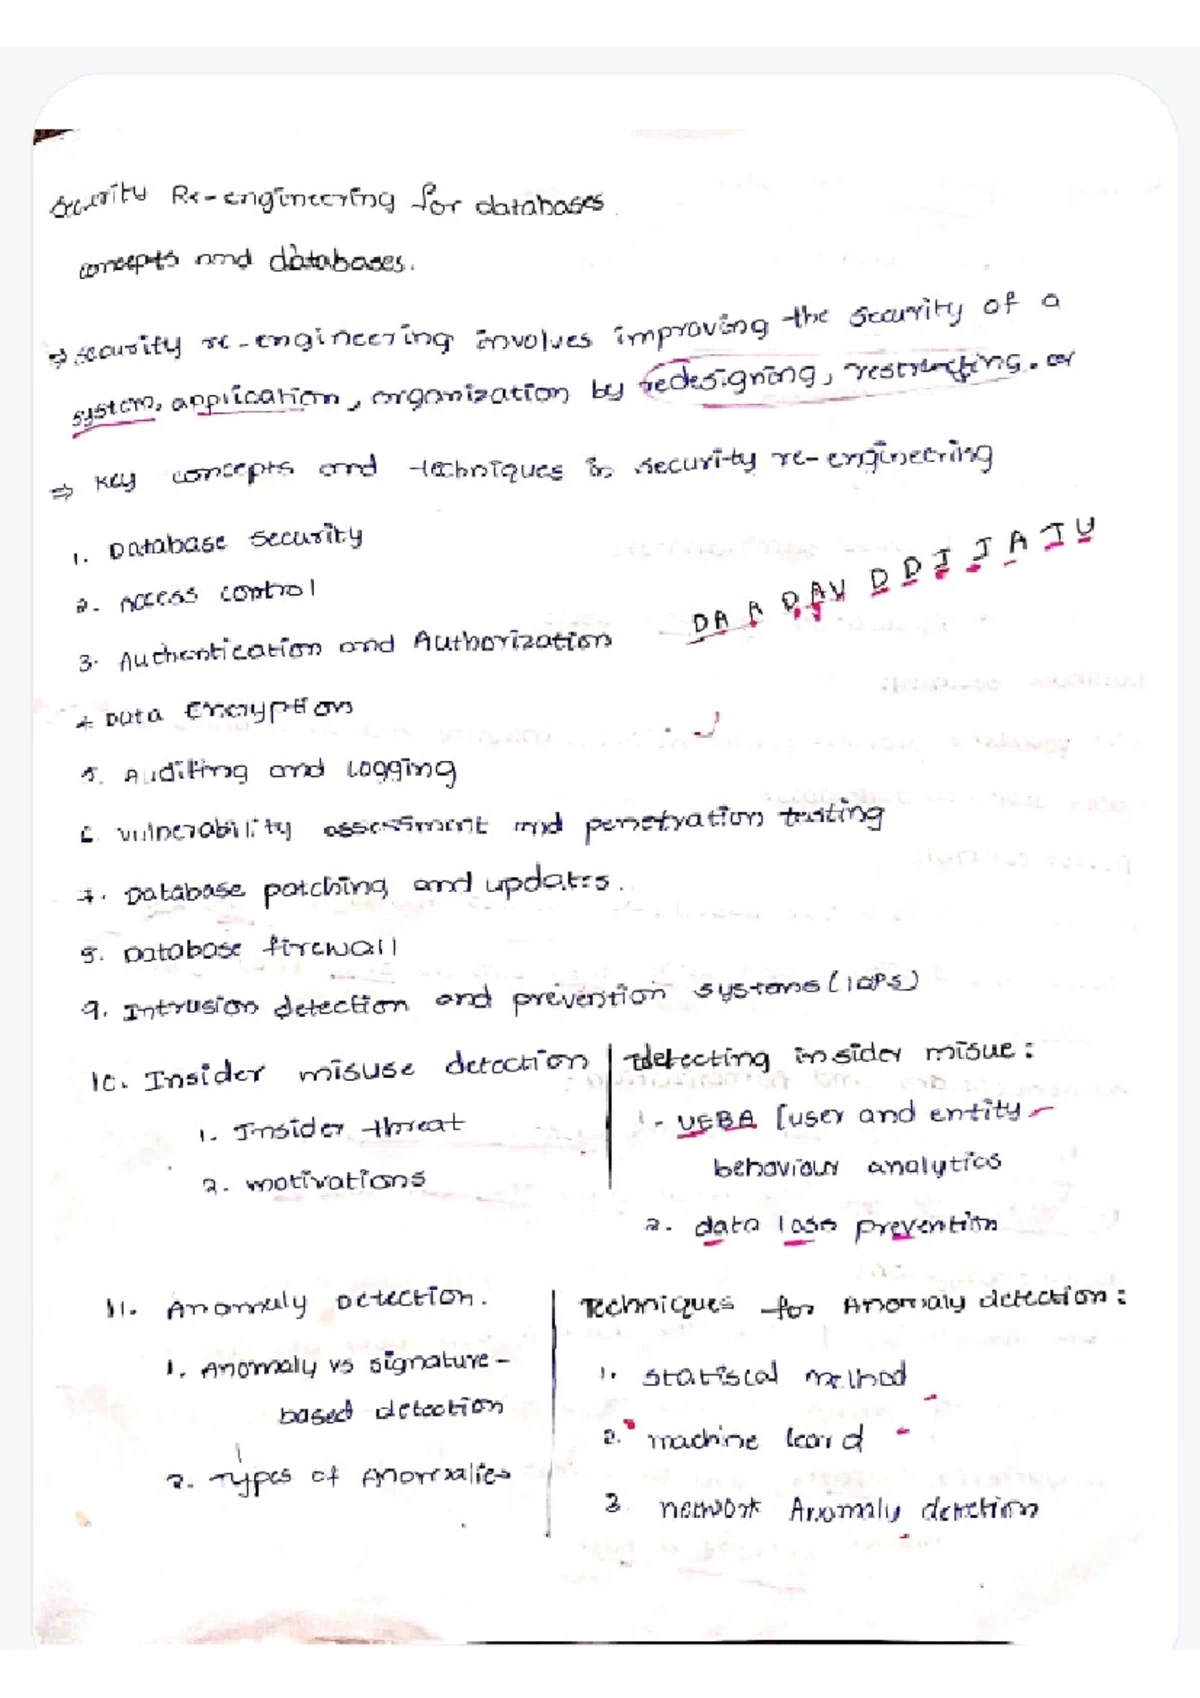 Security Re-engineering for databases
concepts and databases.
⇒ security re-engineering involves improving the security of a
system, application, organization by redesigning, restructing. or
⇒ Key concepts and techniques in security re-engineering
1. Database Security
2. Access control
3. Authentication and Authorization
DA A D AV D D I I A I U
4. Data Encryption
5. Auditing and Logging
6. Vulnerability assessment and penetration testing
7. Database patching and updates.
8. Database firewall
9. Intrusion detection and prevention systems (IDPS)
10. Insider misuse detection
1. Insider threat
2. motivations
detecting insider misue:
1. UEBA [user and entity
behaviour analytics
2. data loss prevention
11. Anomaly Detection.
1. Anomaly vs signature-
based detection
2. Types of Anomalies
Techniques for Anomaly detection:
1. statiscal method
2. machine
3. network Anomaly detection